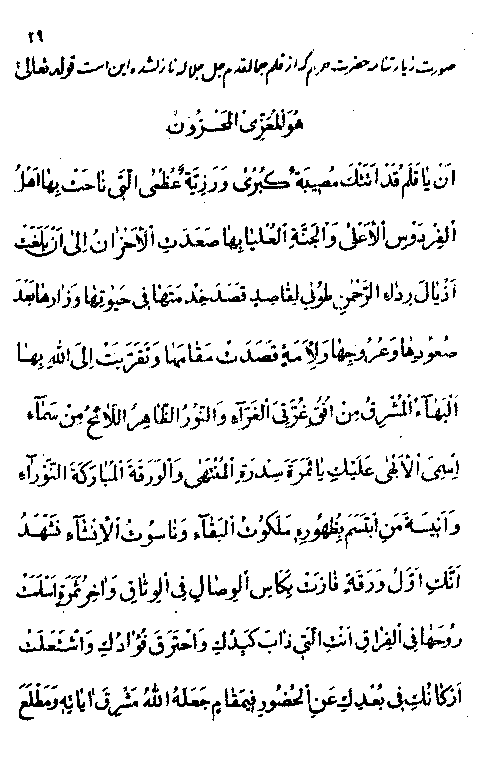 ٢٩
صورت زیارتنامه حضرت حرم که از قلم جمالقدم جل جلاله نازلشده این است قوله تعالی
هُوَ المُعَزّی المَحْزُون
اَنْ یا قَلَمُ قَدْ اَتَتْكَ مُصیبَةٌ كُبْرٰی وَ رَزِیَّةٌ عُظْمٰی الَّتی ناحَتْ بِها اَهْلُ
الفِرْدَوْسِ الاَعْلٰی وَ الجَنَّةِ العُلْیا بِها صَعَدَتِ الاَحْزانُ اِلٰی اَنْ بَلَغَتْ
اَذْیالَ رِداءِ الرَّحْمٰنِ طُوبٰی لِقاصِدٍ قَصَدَ خِدْمَتَها فی حَیٰوتِها وَ زارَها بَعْدَ
صُعُودِها وَ عُرُوجِها وَ لِاَمَةٍ قَصَدَتْ مَقامَها وَ تَقَرَّبَتْ اِلَی اللهِ بِها
البَهآءُ المُشْرِقُ مِنْ اُفُقِ غُرَّتِیَ الغَرّآءِ وَ النُّورُ الظّاهِرُ اللّائِحُ مِنْ سَمآءِ
اِسْمِیَ الاَبْهٰی عَلَیْكِ یا ثَمَرَةَ سِدْرَةِ المُنْتَهٰی وَ الوَرَقَةَ المُبارَكَةَ النَّوْرآءِ
وَ اَنیسَةَ مَنِ ابْتَسَمَ بِظُهُورِهِ مَلَكُوتُ البَقآءِ وَ ناسُوتُ الاِنْشآءِ نَشْهَدُ
اَنَّكِ اَوَّلُ وَرَقَةٍ فازَتْ بِكَاْسِ الوِصالِ فِی الوِثاقِ وَ اٰخِرُ ثَمَرَةٍ اَسْلَمَتْ
رُوحَها فِی الفِراقِ اَنْتِ الَّتی ذابَ كَبِدُكِ وَ احْتَرَقَ فُؤادُكِ وَ اشْتَعَلَتْ
اَرْكانُكِ فی بُعْدِكِ عَنِ الحُضُورِ فیمَقامٍ جَعَلَهُ اللهُ مَشْرِقَ اٰیاتِهِ وَ مَطْلَعَ